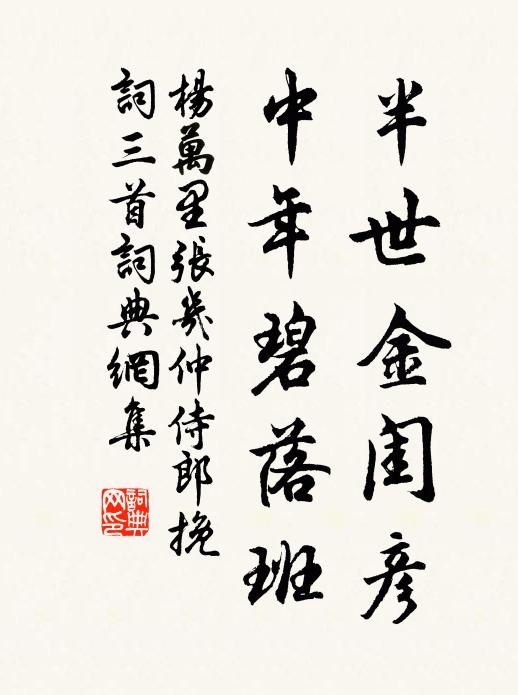 半世金闺彦
中年碧落班
楊萬里張幾仲侍郎挽
詞三首詞典網集
詞典网印